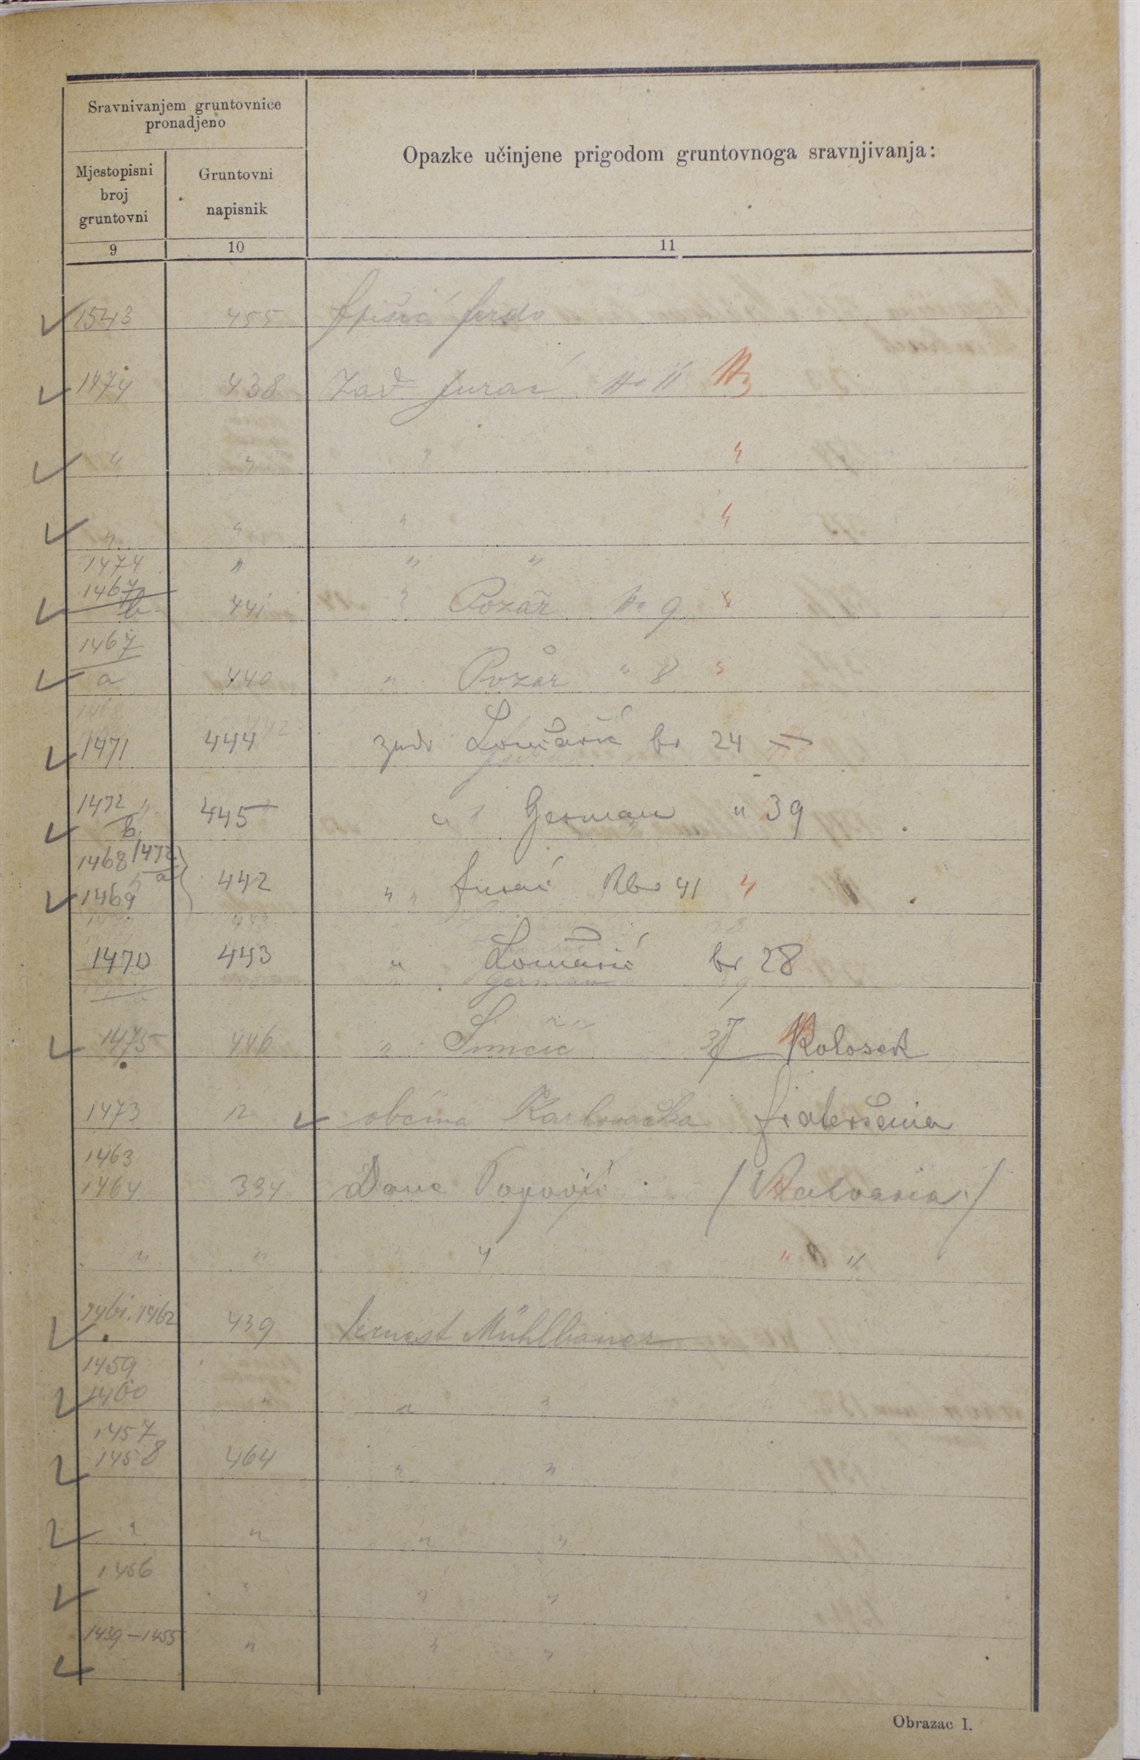 Sravnivanjem gruntovnice
pronadjeno
Opazke učinjene prigodom gruntovnoga sravnjivanja:
Mjestopisni
broj
gruntovni
Gruntovni
napisnik
9 10 11
1543 455
1474 438 Zad Jurac No 11
" " " "
" " " "
1474 " " "
1467
b 441 " Požar No 9 "
1467
a 440 " Požar " 8 "
1471 444 zadr Lončarić br 24
1472
b 445 " German " 39
1468 1472
a
1469 442 " Jurac Kbr 41 "
1470 443 " Lončarić br 28
German
1475 446 " Simčić 37 Kolosek
1473 " občina Karlovačka
1463
1464 394 Dane Popović (Kalvaria)
" " " " "
1461. 1462 439 Ernest Mühlbauer
1459
1460 " " "
1457
1458 464 " "
" " " "
1456 " " "
1439-1455 " " "
Obrazac I.